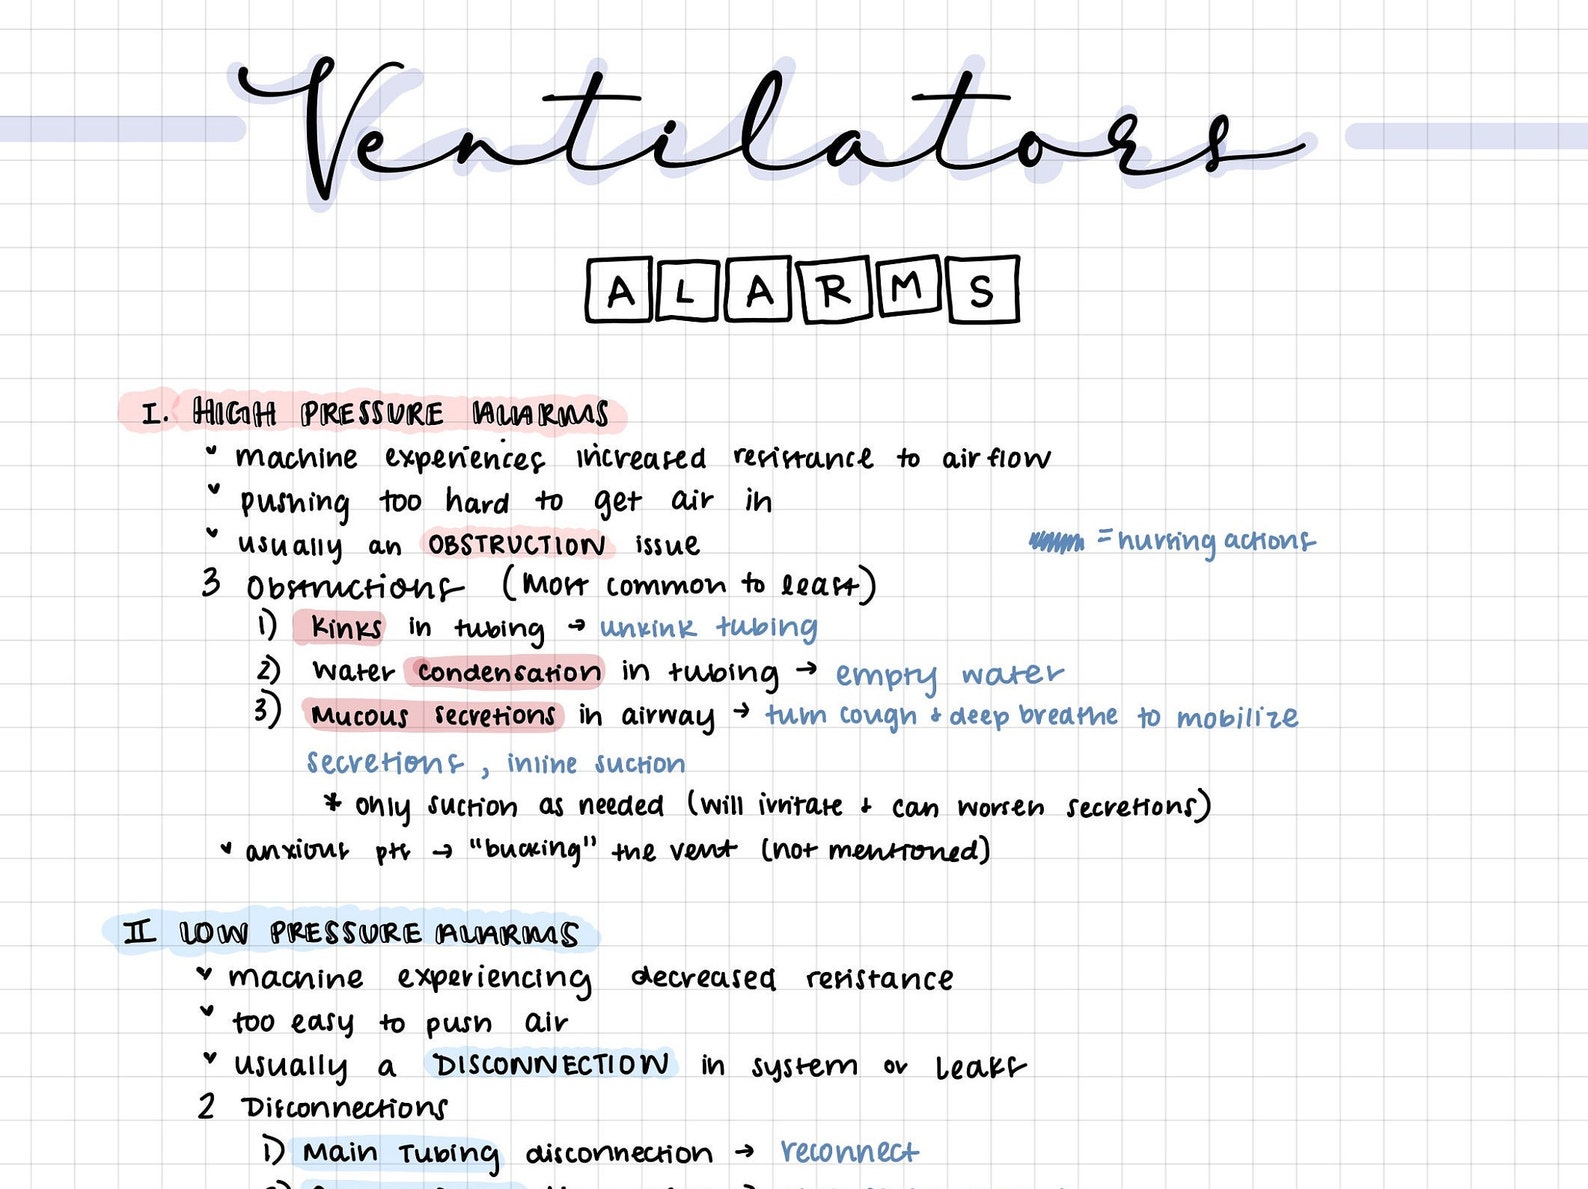 Ventilators
ALARMS
I. HIGH PRESSURE ALARMS
machine experiences increased resistance to air flow
pushing too hard to get air in
usually an OBSTRUCTION issue
= nursing actions
3 Obstructions (Most common to least)
1) Kinks in tubing → unkink tubing
2) Water condensation in tubing → empty water
3) Mucous secretions in airway → turn cough + deep breathe to mobilize
secretions, inline suction
* only suction as needed (will irritate + can worsen secretions)
anxious pts → "bucking" the vent (not mentioned)
II LOW PRESSURE ALARMS
machine experiencing decreased resistance
too easy to push air
usually a DISCONNECTION in system or leaks
2 Disconnections
1) Main Tubing disconnection → reconnect